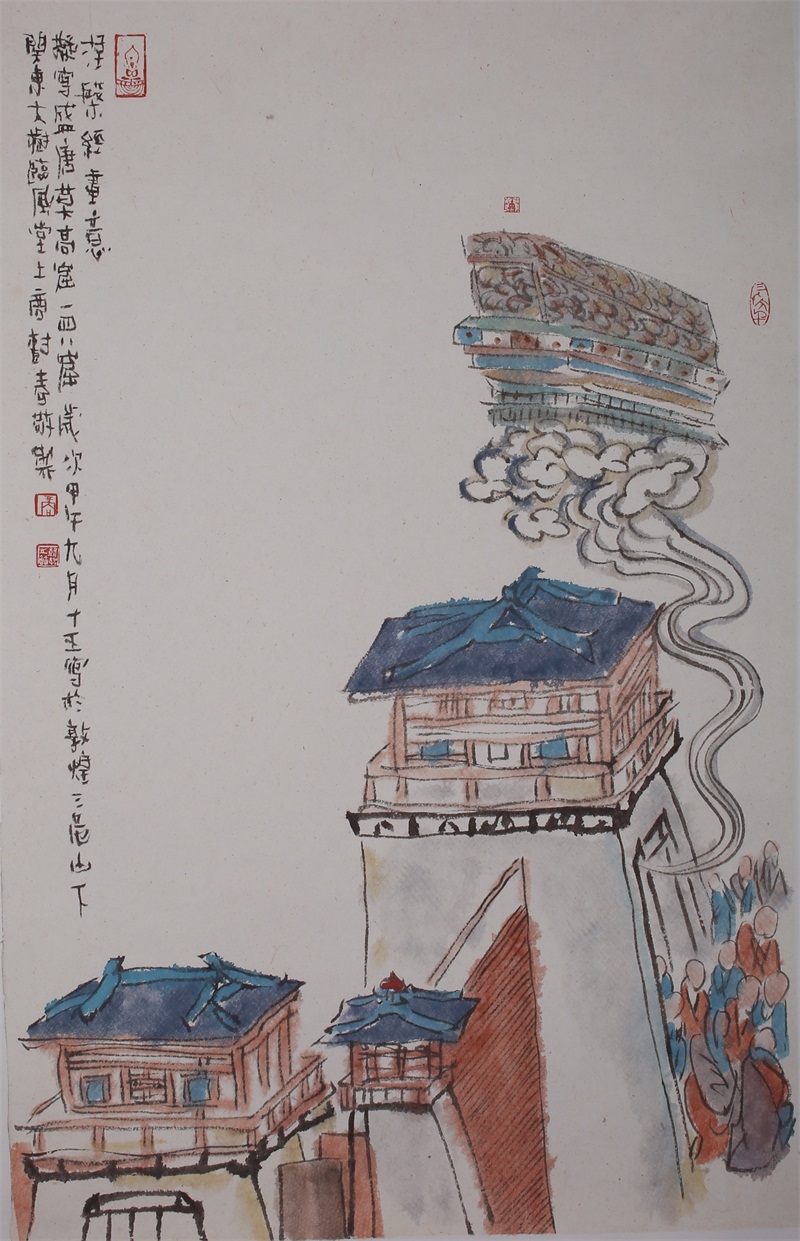 涅槃經畫意
擬寫盛唐莫高窟一四八窟歲次甲午九月十五寫於敦煌三危山下
関東大樹臨風堂上商樹春敬製